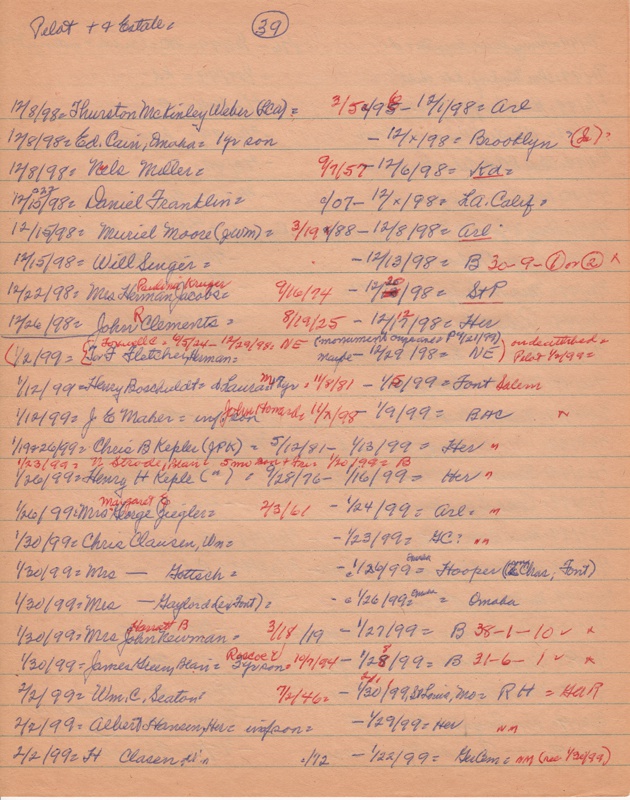 Pilot + & Estate = 39
12/8/98 = Thurston McKinley Weber (KCa) = 3/5/98 - 12/1/98 = Arl
12/8/98 = Ed. Cain, Omaha = 1yr son - 12/x/98 = Brooklyn
12/8/98 = Nels Moller = 9/7/57 - 12/6/98 = Kd =
12/15/98 = Daniel Franklin = /07 - 12/x/98 = LA. Calif =
12/15/98 = Muriel Moore (gWm) = 3/19/88 - 12/8/98 = Arl
12/15/98 = Will Singer = - 12/13/98 = B 30-9-1 or 2
Pauline Kruger
12/22/98 = Mrs Herman Jacobs = 9/16/74 - 12/20/98 = St P
12/26/98 = John R Clements = 8/19/25 - 12/17/98 = Her
Foxwell C = 9/5/24 - 12/29/98 = NE (monument
(1/2/99 = Fletcher, Herman = maybe - 12/29/98 = NE) undoubted = Pilot
1/12/99 = Henry Boschuldt = & Laura 7yr = 11/8/81 - 1/5/99 = Font Salem
1/12/99 = J C Maher = inf son John Howard = 11/2/98 - 1/9/99 = BAC
1/19 & 26/99 = Chris B Kepler (JPK) = 5/12/81 - 1/13/99 = Her "
1/23/99 = Strode, Blair = 5 mo = 1/20/99 = B
1/26/99 = Henry H Keple (") = 1/28/76 - 1/16/99 = Her "
Margaret C
1/26/99 = Mrs George Ziegler = 2/3/61 - 1/24/99 = Arl =
1/30/99 = Chris Clausen, Wm = - 1/23/99 = GC?
1/30/99 = Mrs — Gottsch = - 1/29/99 = Hooper (Char, Font)
1/30/99 = Mrs — Gaylord (ex Font) = - 1/26/99 = Omaha
Harriet B
1/30/99 = Mrs John Newman = 3/18/19 - 1/27/99 = B 38-1-10
1/30/99 = James Green, Blair = Roscoe 3yr son = 10/7/94 - 1/28/99 = B 31-6-1
2/2/99 = Wm. C, Seaton 7/2/46 = - 1/30/99, St Louis, Mo = R H = Her
2/2/99 = Albert Hansen, Her = inf son = - 1/29/99 = Her
2/2/99 = H Clasen = /12 - 1/22/99 = (rec 1/30/99)